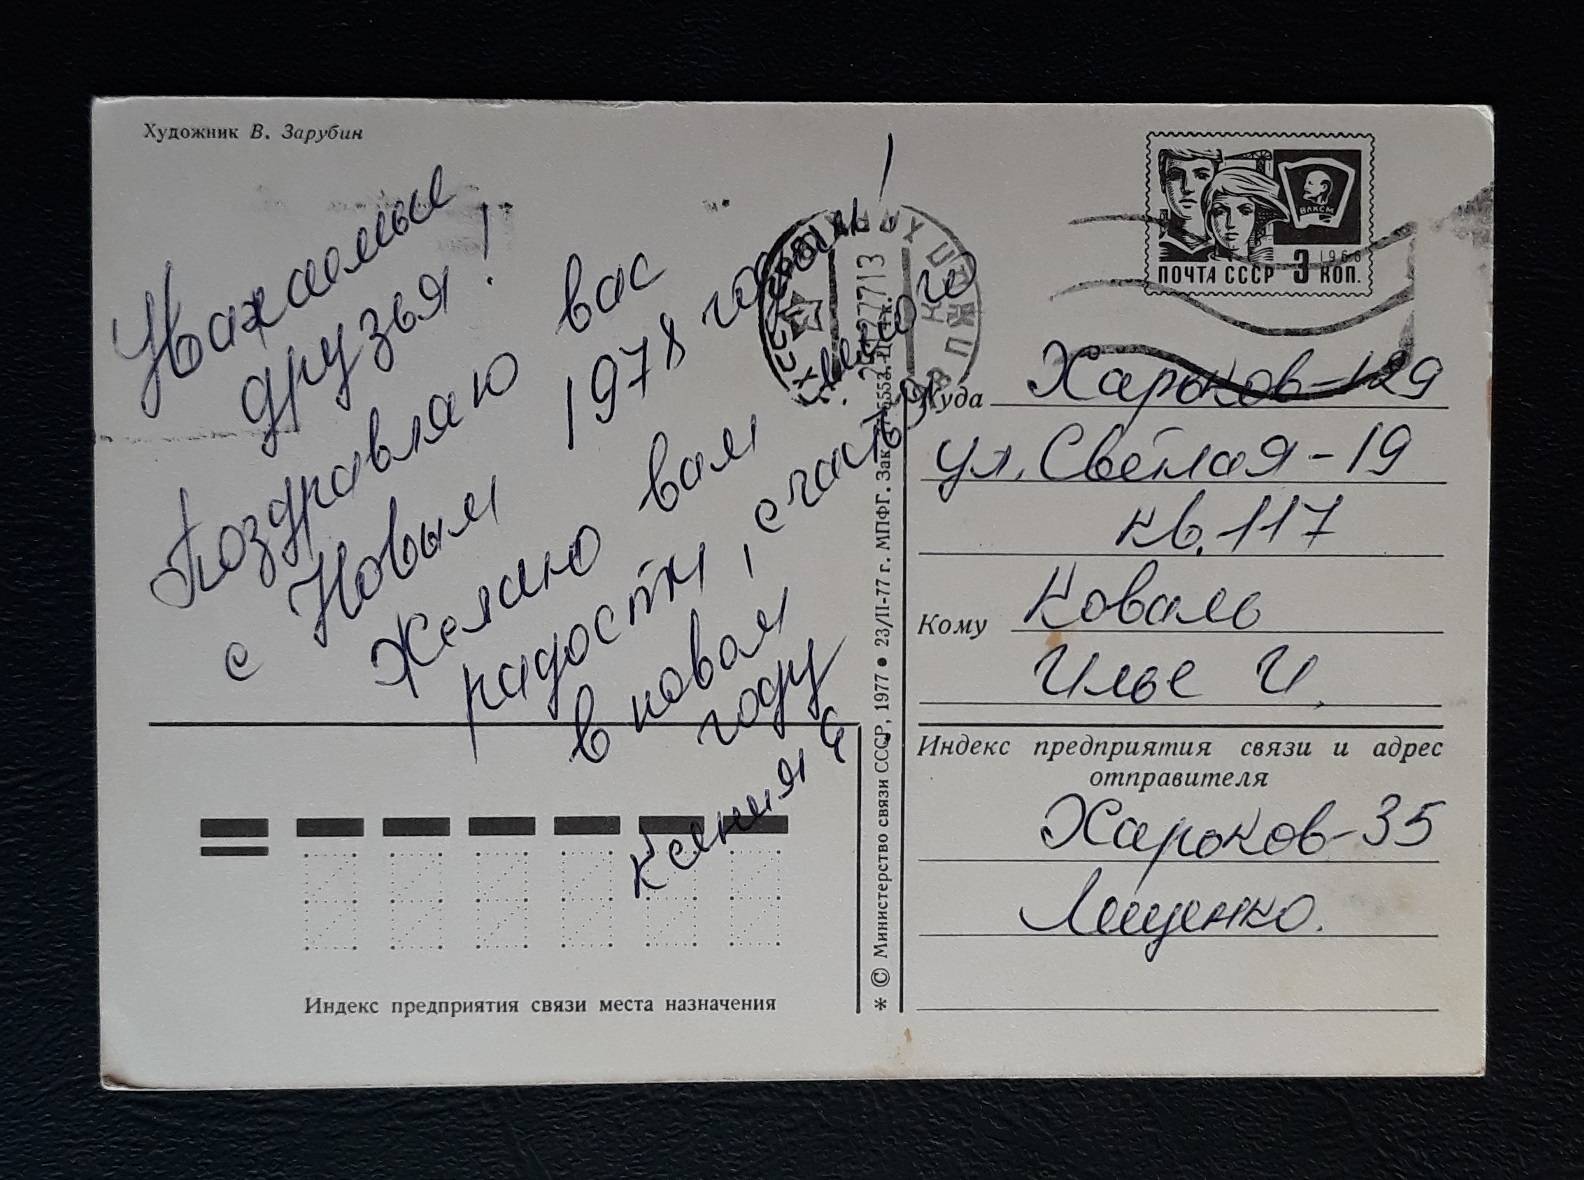 Художник В. Зарубин
друзья!
Поздравляю вас
с Новым 1978 годом!
Желаю вам много
радости, счастья
в новом
году
Ксения
ВЛКСМ
1966
ПОЧТА СССР 3 КОП.
Куда Харьков-129
ул. Светлая-19
кв. 117
Кому Коваль
Илье И.
Индекс предприятия связи и адрес
отправителя
Харьков-35
Лещенко.
Индекс предприятия связи места назначения
* © Министерство связи СССР, 1977 • 23/II-77 г. МПФГ. Зак.